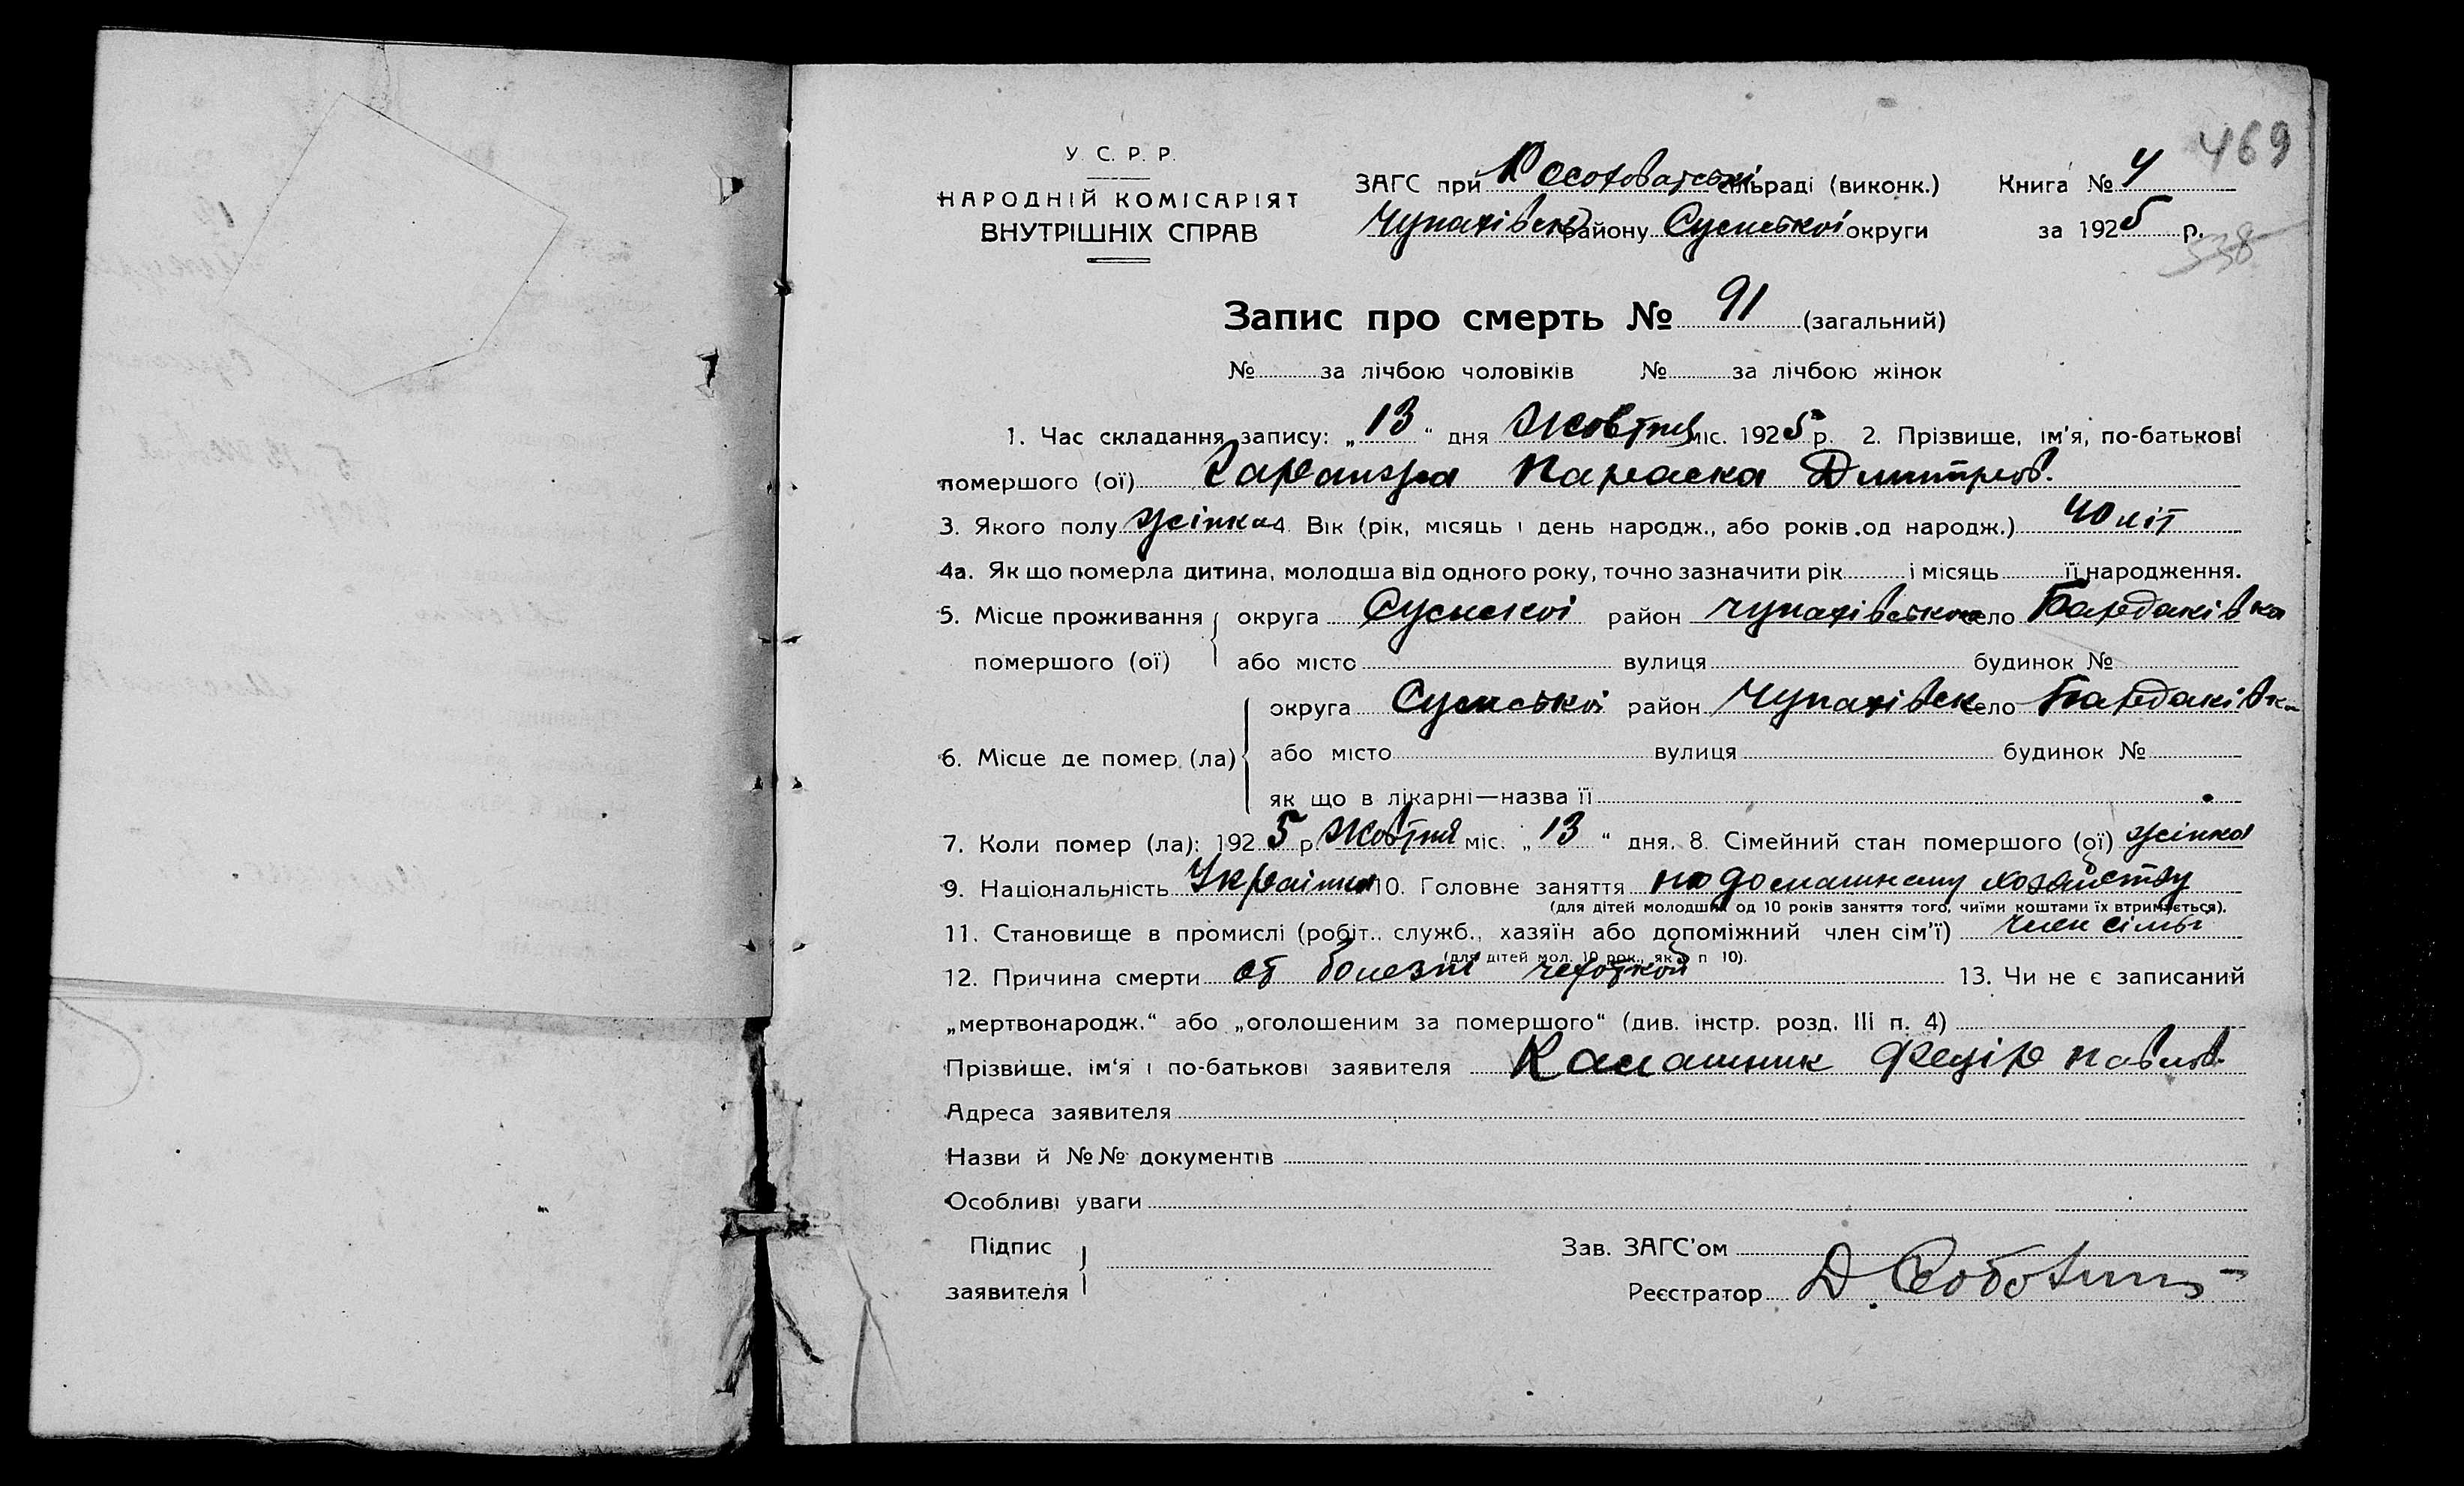 469
У. С. Р. Р.
НАРОДНІЙ КОМІСАРІЯТ
ВНУТРІШНІХ СПРАВ
ЗАГС при сільраді (виконк.) Книга № 4
Чупахівськ району Сумської округи за 1925 р.
538
Запис про смерть № 91 (загальний)
№ за лічбою чоловіків № за лічбою жінок
1. Час складання запису: „13“ дня Жовтня міс. 1925 р. 2. Прізвище, ім'я, по-батькові
помершого (ої) Параска Дмитров.
3. Якого полу жінка 4. Вік (рік, місяць і день народж., або років од народж.) 40 літ
4а. Як що померла дитина, молодша від одного року, точно зазначити рік і місяць її народження.
5. Місце проживання округа Сумскої район Чупахівсько село Бардаківка
помершого (ої) або місто вулиця будинок №
округа Сумської район Чупахівск село Бардаківка
6. Місце де помер (ла) або місто вулиця будинок №
як що в лікарні—назва її
7. Коли помер (ла): 1925 р. Жовтня міс. „13“ дня. 8. Сімейний стан помершого (ої) жінка
9. Національність Українка 10. Головне заняття по домашньому хозяйству
(для дітей молодших од 10 років заняття того, чиїми коштами їх втримується).
11. Становище в промислі (робіт., служб., хазяїн або допоміжний член сім'ї) член сімьї
(для дітей мол. 10 рок., як в п 10).
12. Причина смерти от болезні чехоткой 13. Чи не є записаний
„мертвонародж.“ або „оголошеним за помершого“ (див. інстр. розд. III п. 4)
Прізвище, ім'я і по-батькові заявителя Калашник Федір Павлов.
Адреса заявителя
Назви й №№ документів
Особливі уваги
Підпис Зав. ЗАГС'ом
заявителя Реєстратор Д.